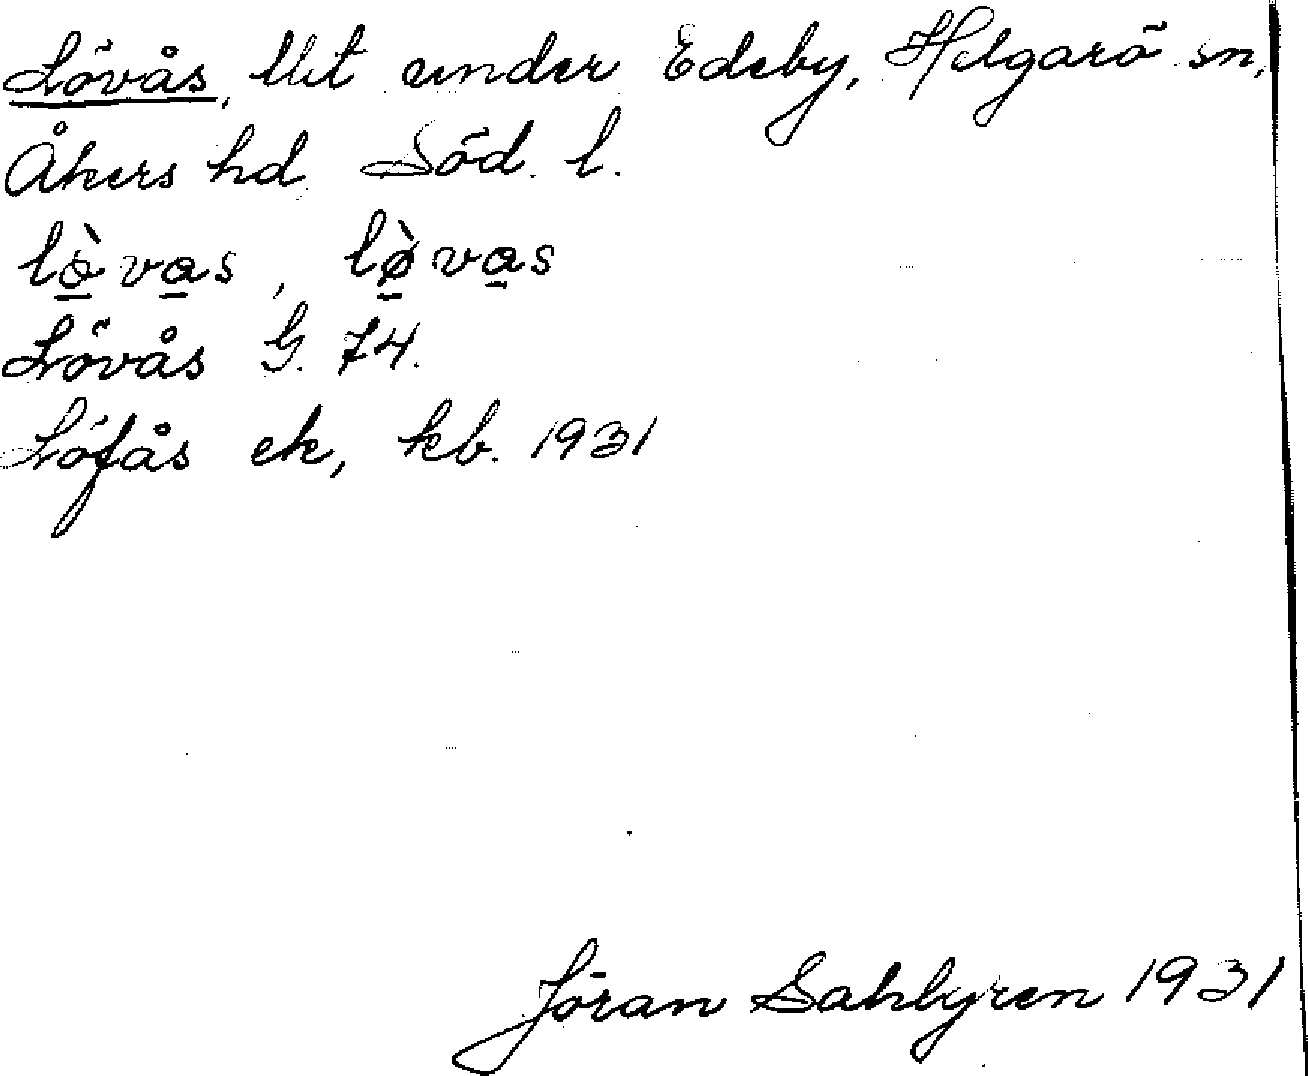 Lövås, lht under Edeby, Helgarö sn,
Åkers hd Söd. l.
lò̱va̱s, lø̱̀va̱s
Lövås G. 74.
Löfås ek, kb. 1931
Jöran Sahlgren 1931